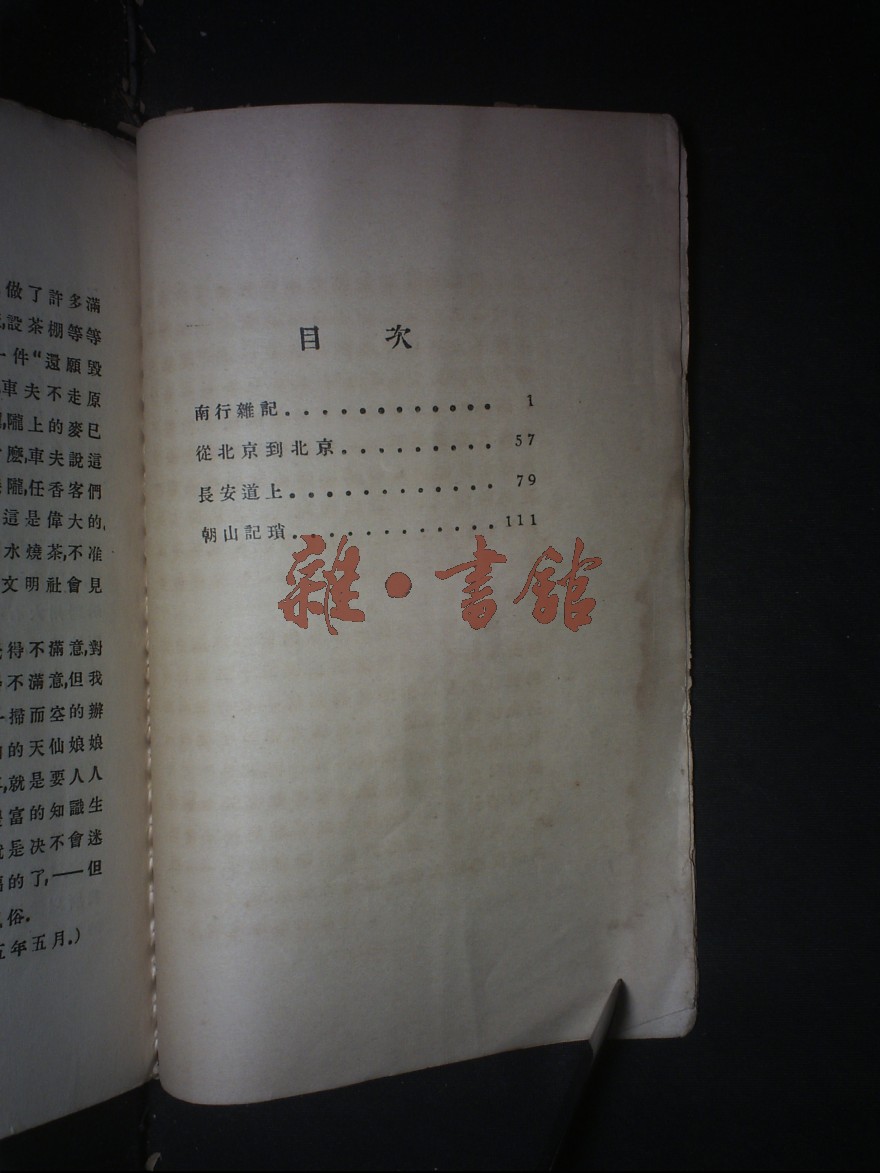 做了許多滿
,設茶棚等等
一件“還願毀
車夫不走原
,隴上的麥已
麽,車夫說這
隴,任香客們
這是偉大的,
水燒茶,不准
文明社會見
得不滿意,對
不滿意,但我
一掃而空的辦
的天仙娘娘
,就是要人人
富的知識生
就是决不會迷
的了,——但
俗.
五年五月.)
目 次
南行雜記............ 1
從北京到北京......... 57
長安道上............ 79
朝山記瑣............ 111
雜·書館